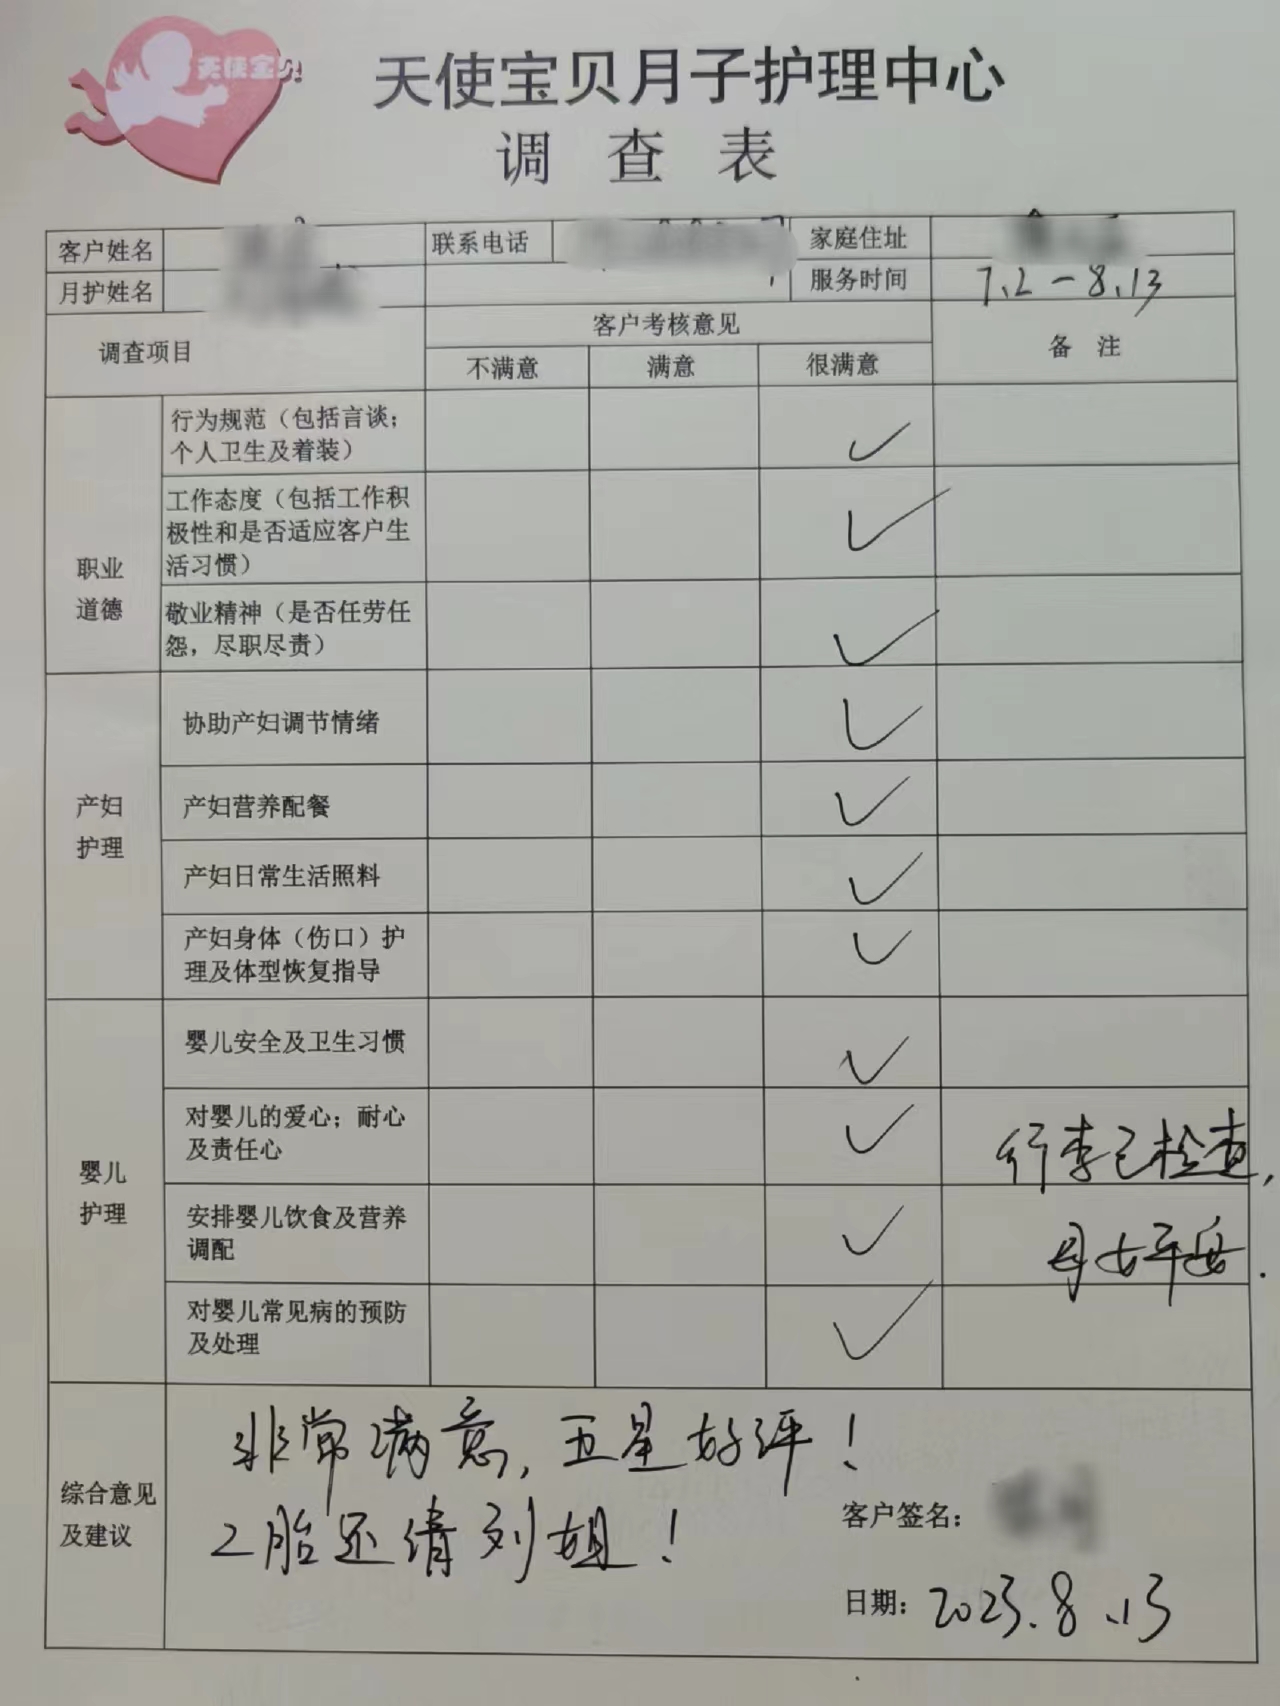 天使宝贝
天使宝贝月子护理中心
调查表
客户姓名 联系电话 家庭住址
月护姓名 服务时间 7.2-8.13
调查项目 客户考核意见 备注
不满意 满意 很满意
职业
道德
行为规范（包括言谈；
个人卫生及着装） ✓
工作态度（包括工作积
极性和是否适应客户生
活习惯） ✓
敬业精神（是否任劳任
怨，尽职尽责） ✓
产妇
护理
协助产妇调节情绪 ✓
产妇营养配餐 ✓
产妇日常生活照料 ✓
产妇身体（伤口）护
理及体型恢复指导 ✓
婴儿
护理
婴儿安全及卫生习惯 ✓
对婴儿的爱心；耐心
及责任心 ✓
安排婴儿饮食及营养
调配 ✓
对婴儿常见病的预防
及处理 ✓
行李已检查，
母女平安.
综合意见
及建议
非常满意，五星好评！
2胎还请刘姐！
客户签名：
日期：2023.8.13